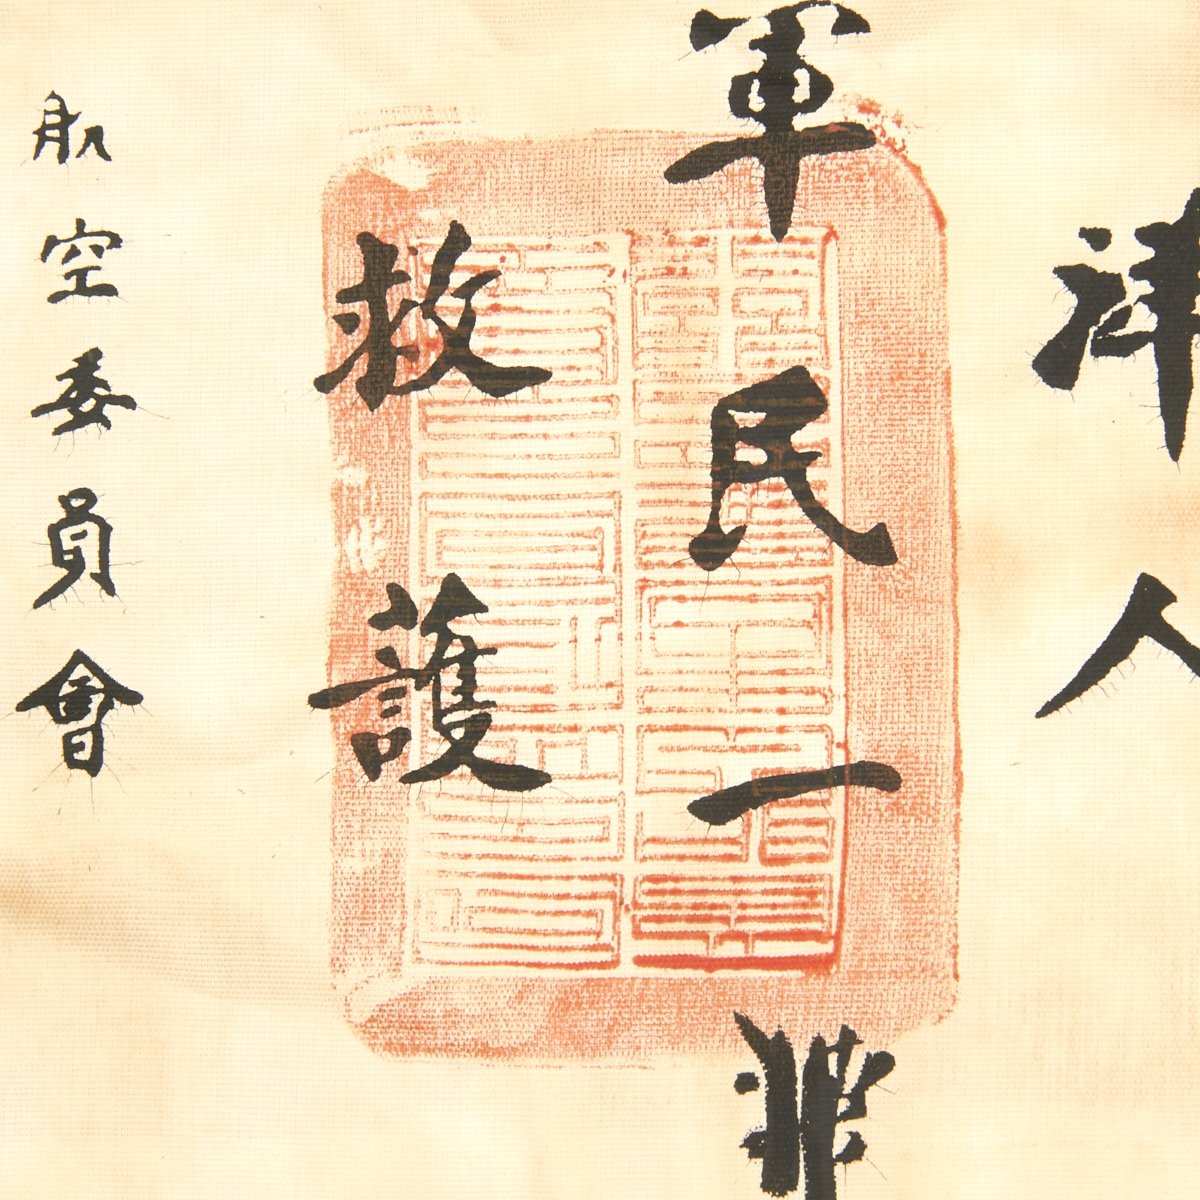 洋人
軍民一體
救護
航空委員會